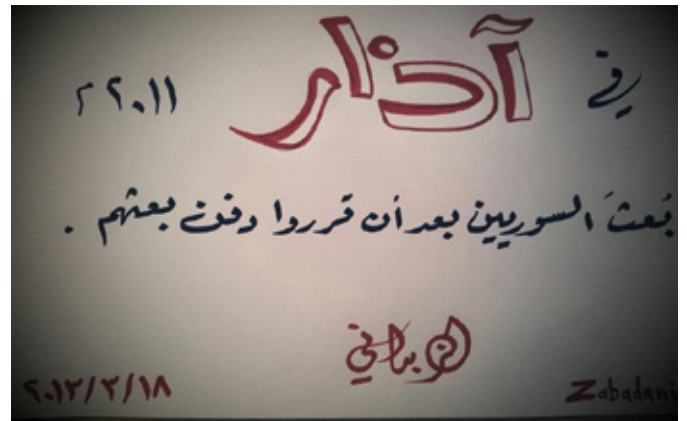 في آذار ٢٠١١ م
بُعثَ السوريين بعد أن قرروا دفن بعثهم .
الزبداني
٢٠١٣/٣/١٨ Zabadani